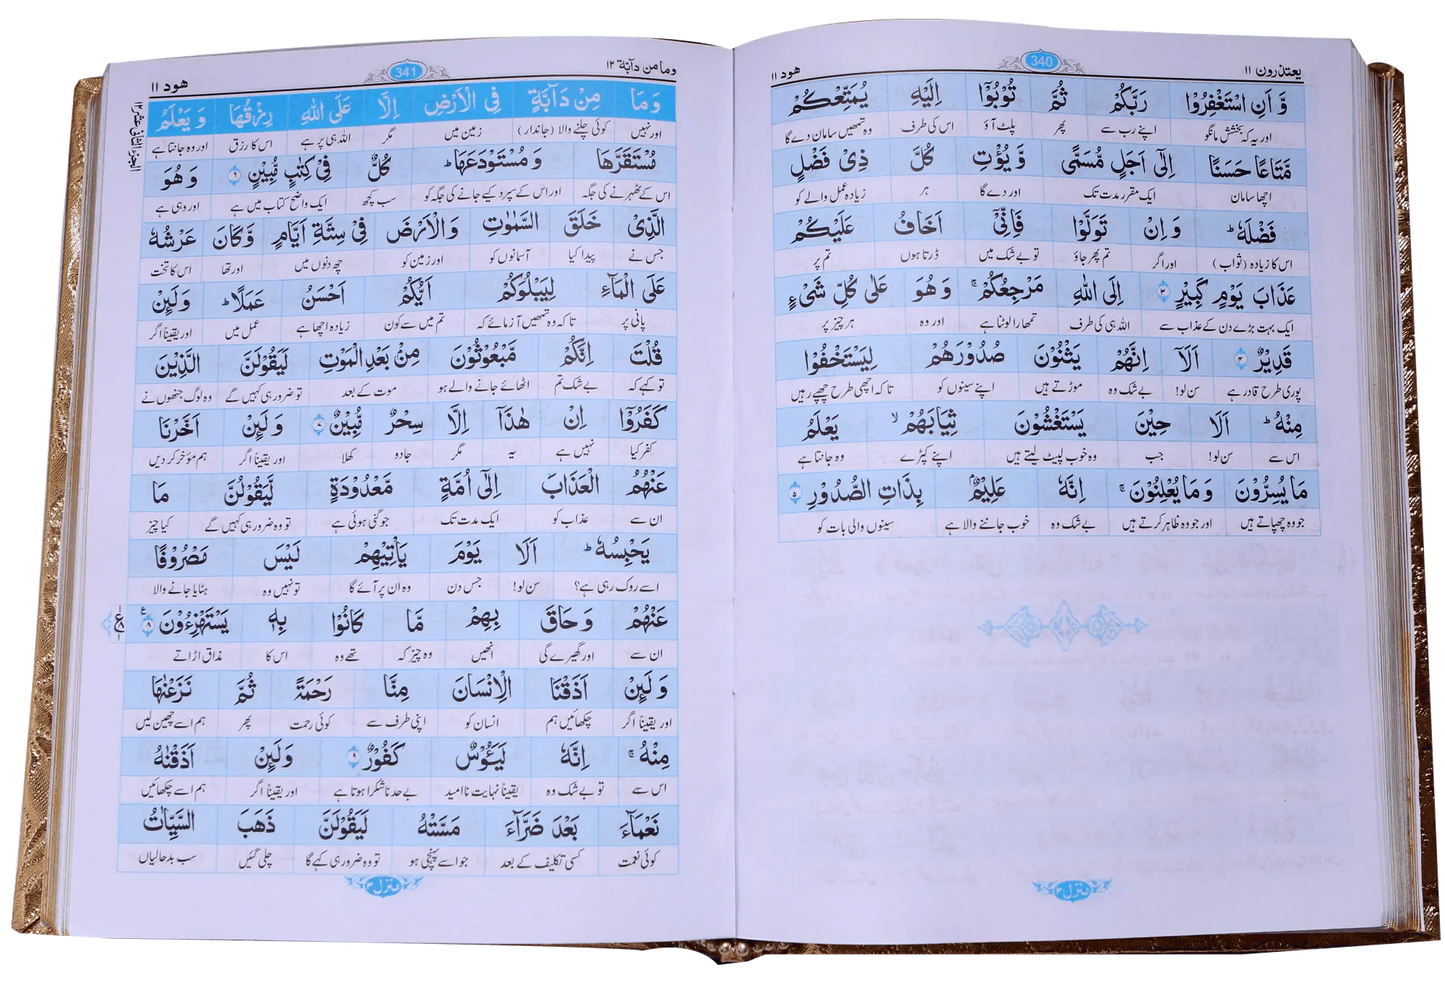 یعتذرون ۱۱
340
ھود ۱۱
وَّ اَنِ اسْتَغْفِرُوْا رَبَّكُمْ ثُمَّ تُوْبُوْۤا اِلَیْهِ یُمَتِّعْكُمْ
اور یہ کہ بخشش مانگو اپنے رب سے پھر پلٹ آؤ اس کی طرف وہ تمھیں سامان دے گا
مَّتَاعًا حَسَنًا اِلٰۤى اَجَلٍ مُّسَمًّى وَّ یُؤْتِ كُلَّ ذِیْ فَضْلٍ
اچھا سامان ایک مقرر مدت تک اور دے گا ہر زیادہ عمل والے کو
فَضْلَهٗ ؕ وَ اِنْ تَوَلَّوْا فَاِنِّیْۤ اَخَافُ عَلَیْكُمْ
اس کا زیادہ (ثواب) اور اگر تم پھر جاؤ تو بے شک میں ڈرتا ہوں تم پر
عَذَابَ یَوْمٍ كَبِیْرٍ ۳ اِلَى اللّٰهِ مَرْجِعُكُمْ ۚ وَ هُوَ عَلٰى كُلِّ شَیْءٍ
ایک بہت بڑے دن کے عذاب سے اللہ ہی کی طرف تمھارا لوٹنا ہے اور وہ ہر چیز پر
قَدِیْرٌ ۴ اَلَاۤ اِنَّهُمْ یَثْنُوْنَ صُدُوْرَهُمْ لِیَسْتَخْفُوْا
پوری طرح قادر ہے سن لو! بے شک وہ موڑتے ہیں اپنے سینوں کو تا کہ اچھی طرح چھپے رہیں
مِنْهُ ؕ اَلَا حِیْنَ یَسْتَغْشُوْنَ ثِیَابَهُمْ ۙ یَعْلَمُ
اس سے سن لو! جب وہ خوب لپیٹ لیتے ہیں اپنے کپڑے وہ جانتا ہے
مَا یُسِرُّوْنَ وَ مَا یُعْلِنُوْنَ ۚ اِنَّهٗ عَلِیْمٌۢ بِذَاتِ الصُّدُوْرِ ۵
جو وہ چھپاتے ہیں اور جو وہ ظاہر کرتے ہیں بے شک وہ خوب جاننے والا ہے سینوں والی بات کو
منزل ۳
وما من دآبة ۱۲
341
ھود ۱۱
وَ مَا مِنْ دَآبَّةٍ فِی الْاَرْضِ اِلَّا عَلَى اللّٰهِ رِزْقُهَا وَ یَعْلَمُ
اور نہیں کوئی چلنے والا (جاندار) زمین میں مگر اللہ ہی پر ہے اس کا رزق اور وہ جانتا ہے
مُسْتَقَرَّهَا وَ مُسْتَوْدَعَهَا ؕ كُلٌّ فِیْ كِتٰبٍ مُّبِیْنٍ ۶ وَ هُوَ
اس کے ٹھہرنے کی جگہ اور اس کے سپرد کیے جانے کی جگہ کو سب کچھ ایک واضح کتاب میں ہے اور وہی ہے
الَّذِیْ خَلَقَ السَّمٰوٰتِ وَ الْاَرْضَ فِیْ سِتَّةِ اَیَّامٍ وَّ كَانَ عَرْشُهٗ
جس نے پیدا کیا آسمانوں کو اور زمین کو چھ دنوں میں اور تھا اس کا تخت
عَلَى الْمَآءِ لِیَبْلُوَكُمْ اَیُّكُمْ اَحْسَنُ عَمَلًا ؕ وَ لَىِٕنْ
پانی پر تا کہ وہ تمھیں آزمائے کہ تم میں سے کون زیادہ اچھا ہے عمل میں اور یقیناً اگر
قُلْتَ اِنَّكُمْ مَّبْعُوْثُوْنَ مِنْۢ بَعْدِ الْمَوْتِ لَیَقُوْلَنَّ الَّذِیْنَ
تو کہے کہ بے شک تم اٹھائے جانے والے ہو موت کے بعد تو ضرور ہی کہیں گے وہ لوگ جنھوں نے
كَفَرُوْۤا اِنْ هٰذَاۤ اِلَّا سِحْرٌ مُّبِیْنٌ ۷ وَ لَىِٕنْ اَخَّرْنَا
کفر کیا نہیں ہے یہ مگر جادو کھلا اور یقیناً اگر ہم مؤخر کر دیں
عَنْهُمُ الْعَذَابَ اِلٰۤى اُمَّةٍ مَّعْدُوْدَةٍ لَّیَقُوْلُنَّ مَا
ان سے عذاب کو ایک مدت تک جو گنی ہوئی ہے تو وہ ضرور ہی کہیں گے کیا چیز
یَحْبِسُهٗ ؕ اَلَا یَوْمَ یَاْتِیْهِمْ لَیْسَ مَصْرُوْفًا
اسے روک رہی ہے؟ سن لو! جس دن وہ ان پر آئے گا تو نہیں وہ ہٹایا جانے والا
عَنْهُمْ وَ حَاقَ بِهِمْ مَّا كَانُوْا بِهٖ یَسْتَهْزِءُوْنَ ۸
ان سے اور گھیرے گی انھیں وہ چیز کہ تھے وہ اس کا مذاق اڑاتے
وَ لَىِٕنْ اَذَقْنَا الْاِنْسَانَ مِنَّا رَحْمَةً ثُمَّ نَزَعْنٰهَا
اور یقیناً اگر چکھائیں ہم انسان کو اپنی طرف سے کوئی رحمت پھر ہم اسے چھین لیں
مِنْهُ ۚ اِنَّهٗ لَیَـُٔوْسٌ كَفُوْرٌ ۹ وَ لَىِٕنْ اَذَقْنٰهُ
اس سے تو بے شک وہ یقیناً نہایت ناامید بے حد ناشکرا ہوتا ہے اور یقیناً اگر ہم اسے چکھائیں
نَعْمَآءَ بَعْدَ ضَرَّآءَ مَسَّتْهُ لَیَقُوْلَنَّ ذَهَبَ السَّیِّاٰتُ
کوئی نعمت کسی تکلیف کے بعد جو اسے پہنچی ہو تو وہ ضرور ہی کہے گا چلی گئیں سب بدحالیاں
منزل ۳
الجزء الثانی عشر ۱۲